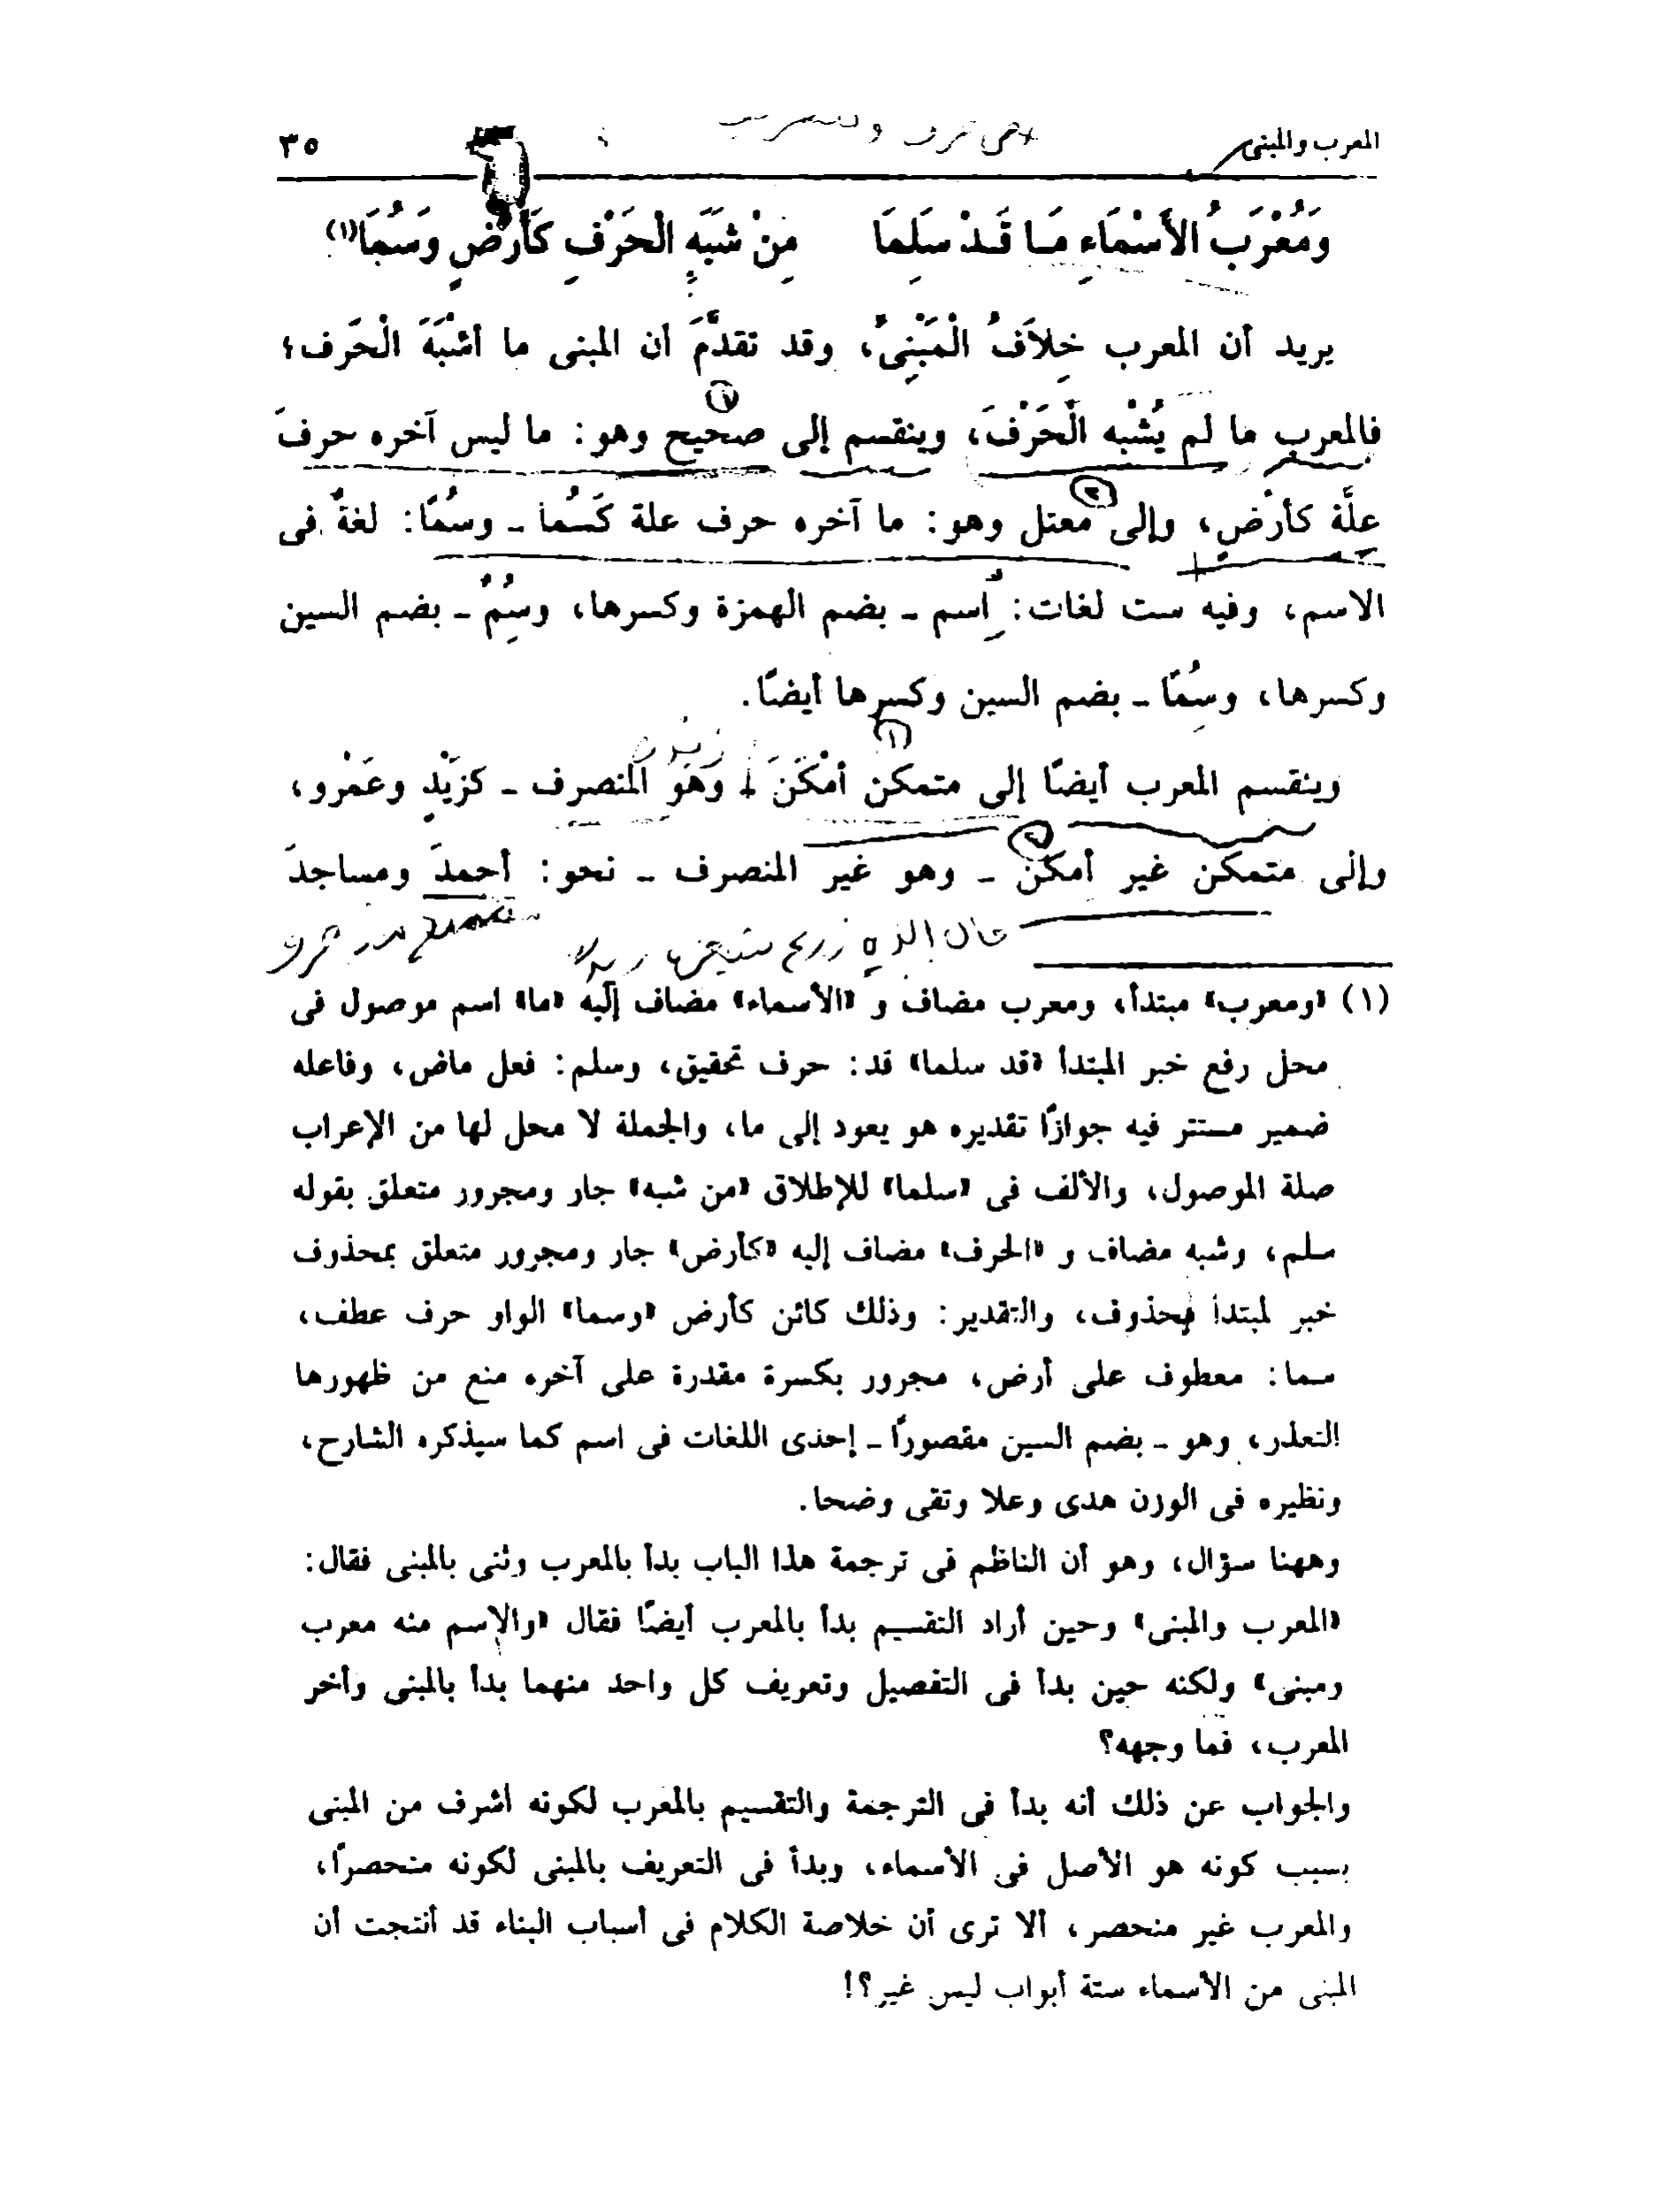 المعرب والمبنى ٣٥
وَمُعْرَبُ الأَسْمَاءِ مَـا قَـدْ سَلِمَا مِنْ شَبَهِ الْحَرْفِ كَأَرْضٍ وَسُمَا(١)
يريد أن المعرب خِلاَفُ الْمَبْنِىِّ، وقد تقدَّمَ أن المبنى ما أشْبَهَ الْحَرف؛
فالمعرب ما لم يُشْبه الْحَرْفَ، وينقسم إلى صحيح وهو: ما ليس آخره حرفَ
علَّة كأرْضٍ، وإلى معتل وهو: ما آخره حرف علة كَسُما ـ وسُمًا: لغةٌ فى
الاسم، وفيه ست لغات: اُسِم ـ بضم الهمزة وكسرها، وسُِمٌ ـ بضم السين
وكسرها، وسُِمًا ـ بضم السين وكسرها أيضًا.
وينقسم المعرب أيضًا إلى متمكن أمْكَنَ ـ وَهُوَ المنصرف ـ كزَيْدٍ وعَمْرو،
وإلى متمكن غير أمكنَ ـ وهو غير المنصرف ـ نحو: أحمدَ ومساجدَ
(١) «ومعرب» مبتدأ، ومعرب مضاف و «الأسماء» مضاف إليه «ما» اسم موصول فى
محل رفع خبر المبتدأ «قد سلما» قد: حرف تحقيق، وسلم: فعل ماض، وفاعله
ضمير مستتر فيه جوازًا تقديره هو يعود إلى ما، والجملة لا محل لها من الإعراب
صلة الموصول، والألف فى «سلما» للإطلاق «من شبه» جار ومجرور متعلق بقوله
سلم، وشبه مضاف و «الحرف» مضاف إليه «كأرض» جار ومجرور متعلق بمحذوف
خبر لمبتدأ محذوف، والتقدير: وذلك كائن كأرض «وسما» الواو حرف عطف،
سما: معطوف على أرض، مجرور بكسرة مقدرة على آخره منع من ظهورها
التعذر، وهو ـ بضم السين مقصورًا ـ إحدى اللغات فى اسم كما سيذكره الشارح،
ونظيره فى الوزن هدى وعلا وتقى وضحا.
وههنا سؤال، وهو أن الناظم فى ترجمة هذا الباب بدأ بالمعرب وثنى بالمبنى فقال:
«المعرب والمبنى» وحين أراد التقسيم بدأ بالمعرب أيضًا فقال «والاسم منه معرب
ومبنى» ولكنه حين بدأ فى التفصيل وتعريف كل واحد منهما بدأ بالمبنى وأخر
المعرب، فما وجهه؟
والجواب عن ذلك أنه بدأ فى الترجمة والتقسيم بالمعرب لكونه أشرف من المبنى
بسبب كونه هو الأصل فى الأسماء، وبدأ فى التعريف بالمبنى لكونه منحصرًا،
والمعرب غير منحصر، ألا ترى أن خلاصة الكلام فى أسباب البناء قد أنتجت أن
المبنى من الأسماء ستة أبواب ليس غير؟!